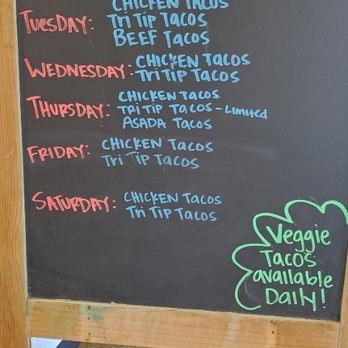 CHICKEN TACOS
TUESDAY: Tri Tip TACOS
BEEF TACOS
WEDNESDAY: CHICKEN TACOS
Tri Tip TACOS
THURSDAY: CHICKEN TACOS
Tri Tip TACOS - Limited
ASADA TACOS
FRIDAY: CHICKEN TACOS
Tri Tip TACOS
SATURDAY: CHICKEN TACOS
Tri Tip TACOS
Veggie
TACOS
available
Daily!